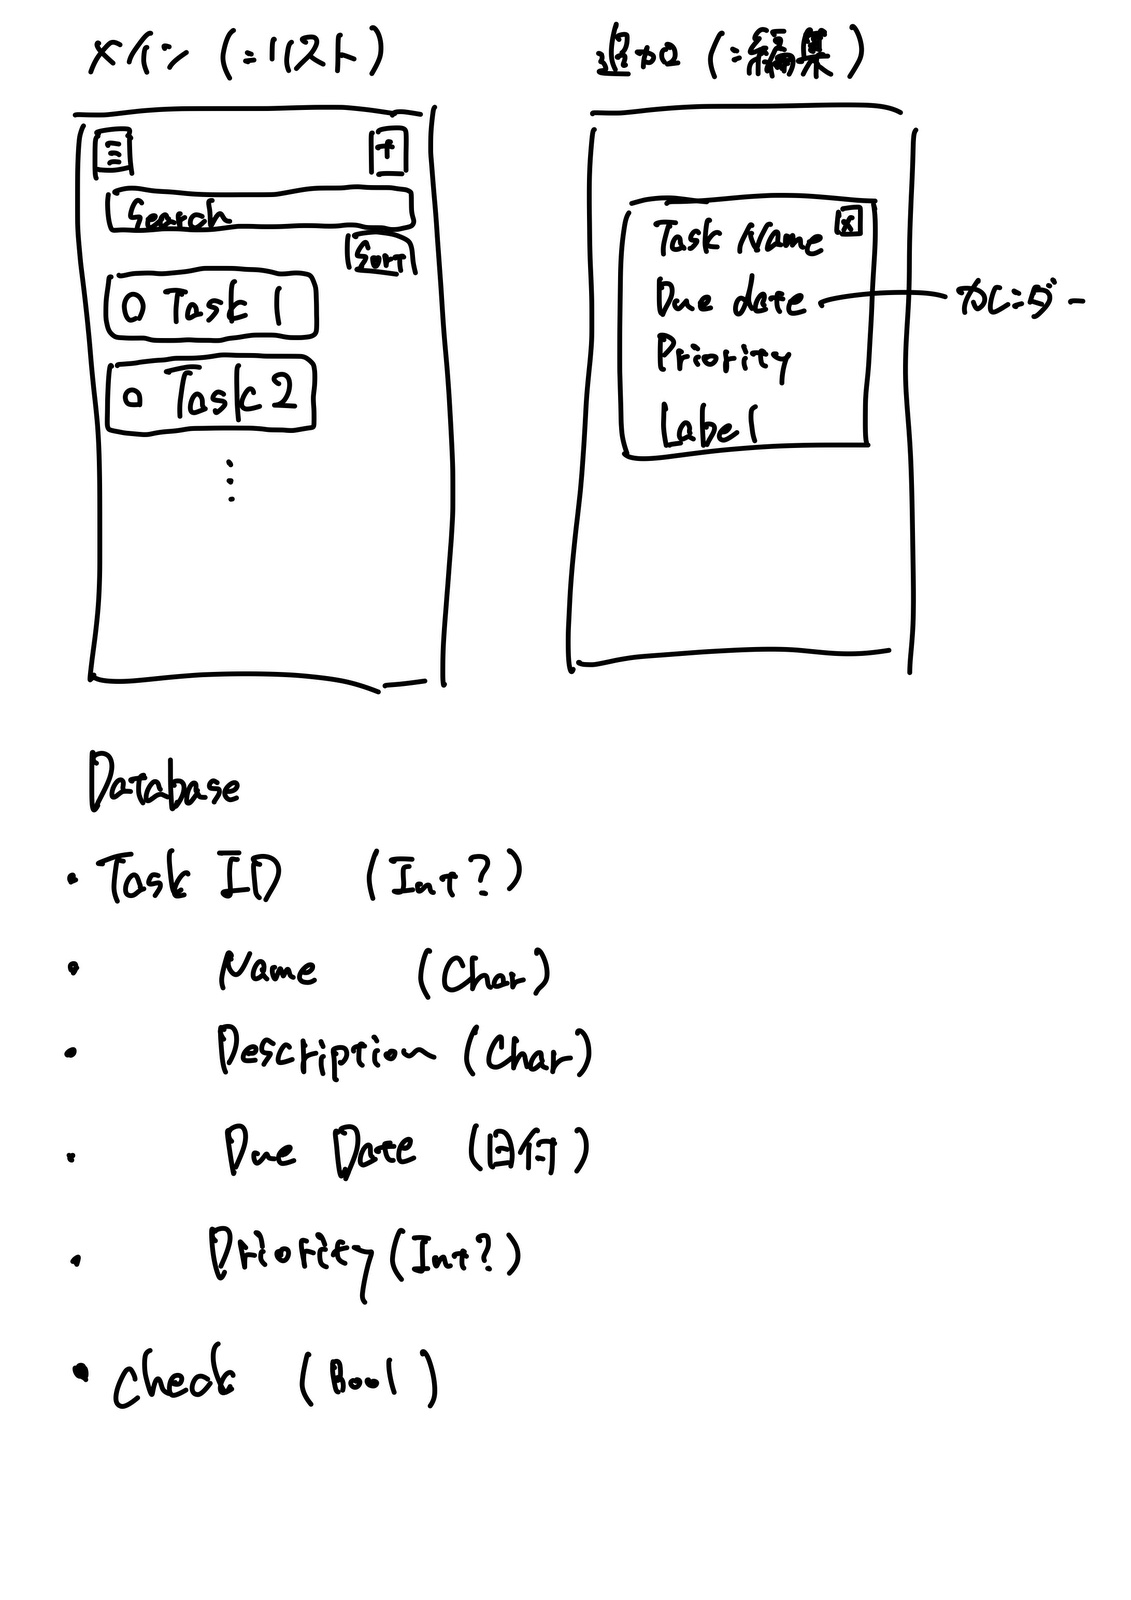 メイン (=リスト)
追加 (=編集)
+
Search
Sort
Task 1
Task 2
⋮
Task Name x
Due date
カレンダー
Priority
Label
Database
・Task ID (Int?)
・ Name (Char)
・ Description (Char)
・ Due Date (日付)
・ Priority (Int?)
・Check (Bool)